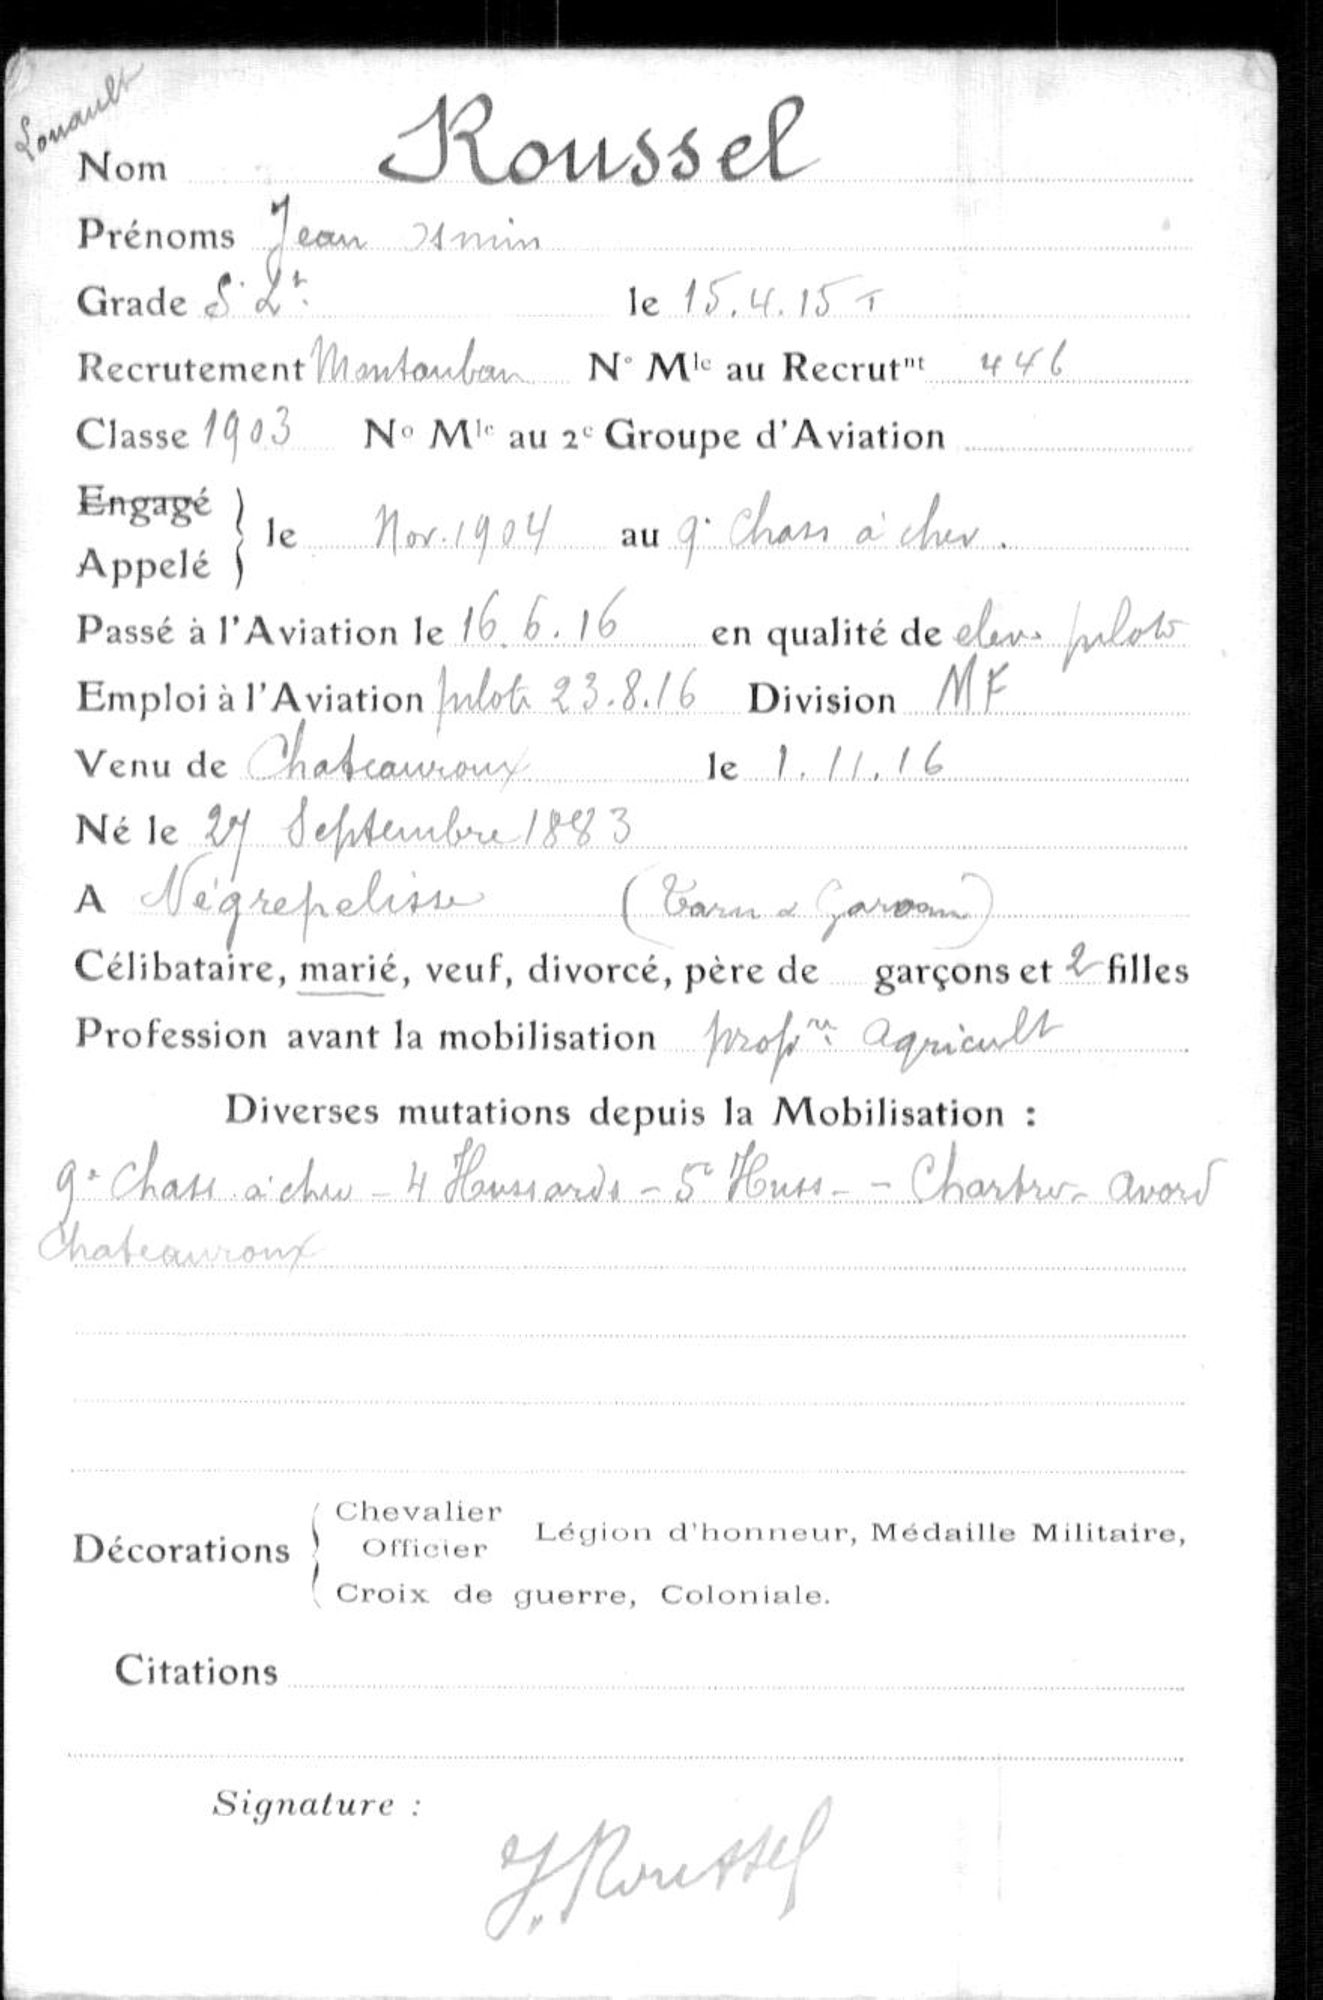 Nom Roussel
Prénoms Jean
Grade S. Lt. le 15.4.15 T
Recrutement Montauban N° Mle au Recrutnt 446
Classe 1903 No Mle au 2e Groupe d'Aviation
Engagé
Appelé } le Nov. 1904 au 9e Chass à chev.
Passé à l'Aviation le 16.6.16 en qualité de elev. pilote
Emploi à l'Aviation pilote 23.8.16 Division MF
Venu de Chateauroux le 1.11.16
Né le 27 Septembre 1883
A Négrepelisse (Tarn & Garonne)
Célibataire, marié, veuf, divorcé, père de garçons et 2 filles
Profession avant la mobilisation propre agricult
Diverses mutations depuis la Mobilisation :
9e Chass à chev - 4 Hussards - 5e Huss - - Chartres - Avord
Chateauroux
Décorations { Chevalier Officier Légion d'honneur, Médaille Militaire,
Croix de guerre, Coloniale.
Citations
Signature :
J. Roussel